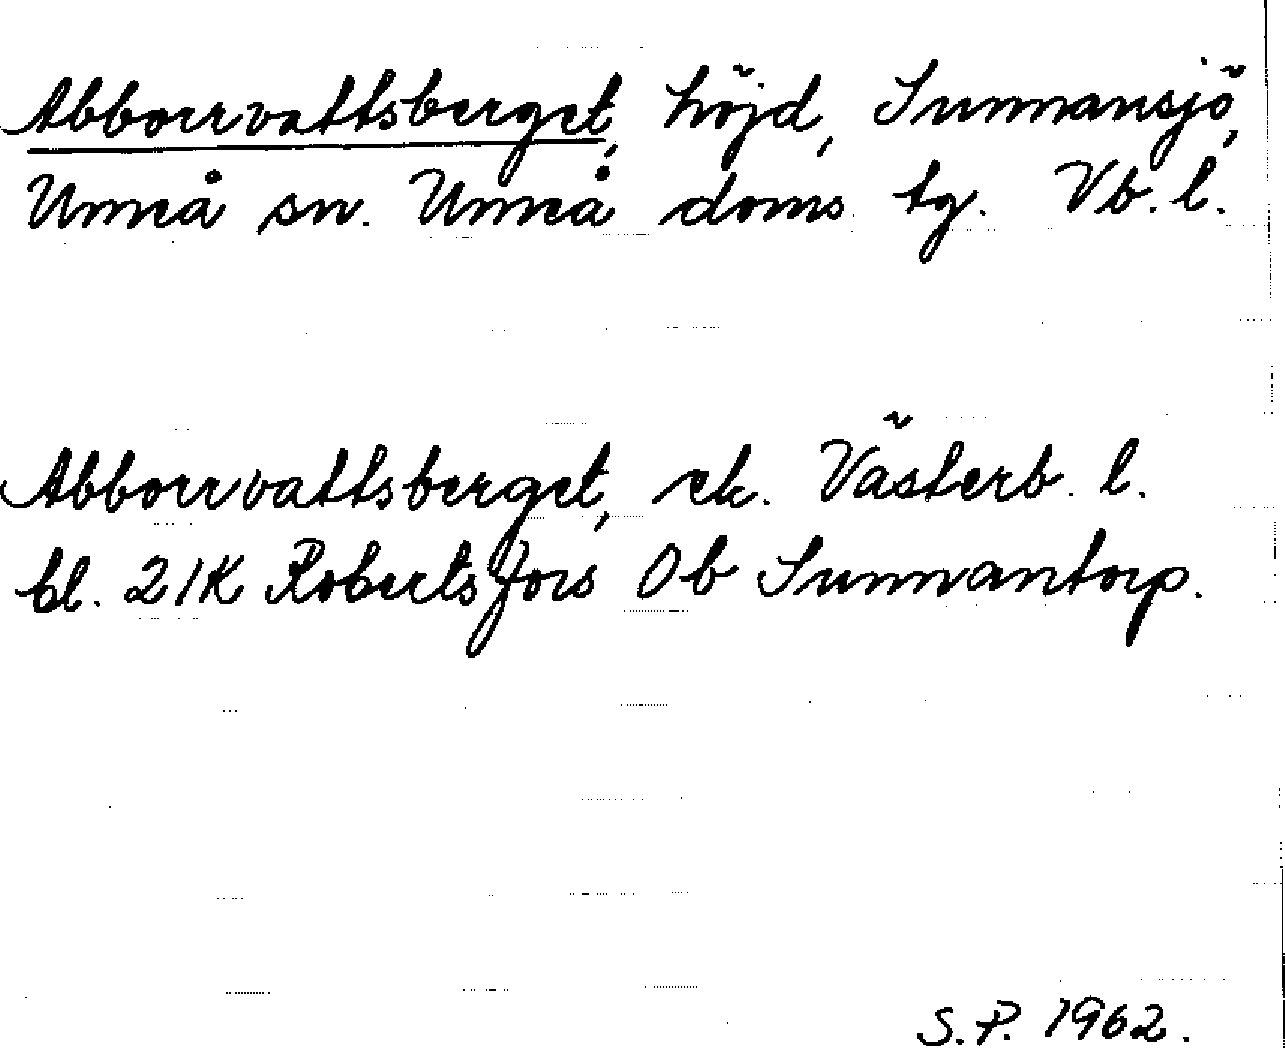 Abborrvattsberget, höjd, Sunnansjö,
Umeå sn. Umeå doms. tg. Vb. l.
Abborrvattsberget, ek. Västerb. l.
bl. 21K Robertsfors 0b Sunnantorp.
S.P. 1962.